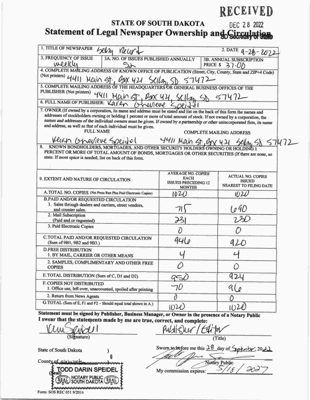 RECEIVED
DEC 28 2022
STATE OF SOUTH DAKOTA
Statement of Legal Newspaper Ownership and Circulation
1. TITLE OF NEWSPAPER Selby Record
2. DATE 9-28-2022
3. FREQUENCY OF ISSUE weekly
3A. NO. OF ISSUES PUBLISHED ANNUALLY
3B. ANNUAL SUBSCRIPTION PRICE $ 37.00
4. COMPLETE MAILING ADDRESS OF KNOWN OFFICE OF PUBLICATION (Street, City, County, State and ZIP+4 Code)
(Not printers) 4411 Main St, Box 421 Selby SD, 57472
5. COMPLETE MAILING ADDRESS OF THE HEADQUARTERS OR GENERAL BUSINESS OFFICES OF THE
PUBLISHER (Not printer) 4411 Main St, Box 421 Selby SD 57472
6. FULL NAME OF PUBLISHER: Karen Speidel
7. OWNER (If owned by a corporation, its name and address must be stated and also on the back of this form the names and
addresses of stockholders owning or holding 1 percent or more of total amount of stock. If not owned by a corporation, the
names and addresses of the individual owners must be given. If owned by a partnership or other unincorporated firm, its name
and address, as well as that of each individual must be given.
FULL NAME COMPLETE MAILING ADDRESS
Speidel 4411 Main St, Box 421, Selby SD 57472
8. KNOWN BONDHOLDERS, MORTGAGES, AND OTHER SECURITY HOLDERS OWNING OR HOLDING 1
PERCENT OR MORE OF TOTAL AMOUNT OF BONDS, MORTGAGES OR OTHER SECURITIES (If there are none, so
state. If more space is needed, list on back of this form.
EXTENT AND NATURE OF CIRCULATION
AVERAGE NO. COPIES EACH ISSUE PRECEDING 12 MONTHS
ACTUAL NO. COPIES ISSUED NEAREST TO FILING DATE
A. TOTAL NO. COPIES 1020 1020
B. PAID AND/OR REQUESTED CIRCULATION
1. Sales through dealers and carriers, street vendors,
and counter sales. 715 690
2. Mail Subscription
(Paid and or requested) 231 230
3. Paid Electronic Copies 0 0
C. TOTAL PAID AND/OR REQUESTED CIRCULATION
(Sum of 9B1, 9B2 and 9B3.) 946 920
D. FREE DISTRIBUTION
1. BY MAIL, CARRIER OR OTHER MEANS 4 4
2. SAMPLES, COMPLIMENTARY AND OTHER FREE
COPIES 0 0
E. TOTAL DISTRIBUTION (Sum of C, D1 and D2) 950 924
F. COPIES NOT DISTRIBUTED
1. Office use, left over, unaccounted, spoiled after printing 70 96
2. Return from News Agents 0 0
G. TOTAL (Sum of E, F1 and F2 – Should equal total shown in A.) 1020 1020
Statement must be signed by Publisher, Business Manager, or Owner in the presence of a Notary Public
I swear that the statements made by me are true, correct, and complete:
Publisher/Editor
(Signature) (Title)
State of South Dakota )
Sworn to before me this 28 day of September, 2022
County of
Notary Public
My commission expires: 5/18/2027
TODD DARIN SPEIDEL
NOTARY PUBLIC
SOUTH DAKOTA
SEAL
Form: SOS REC 051 9/2016